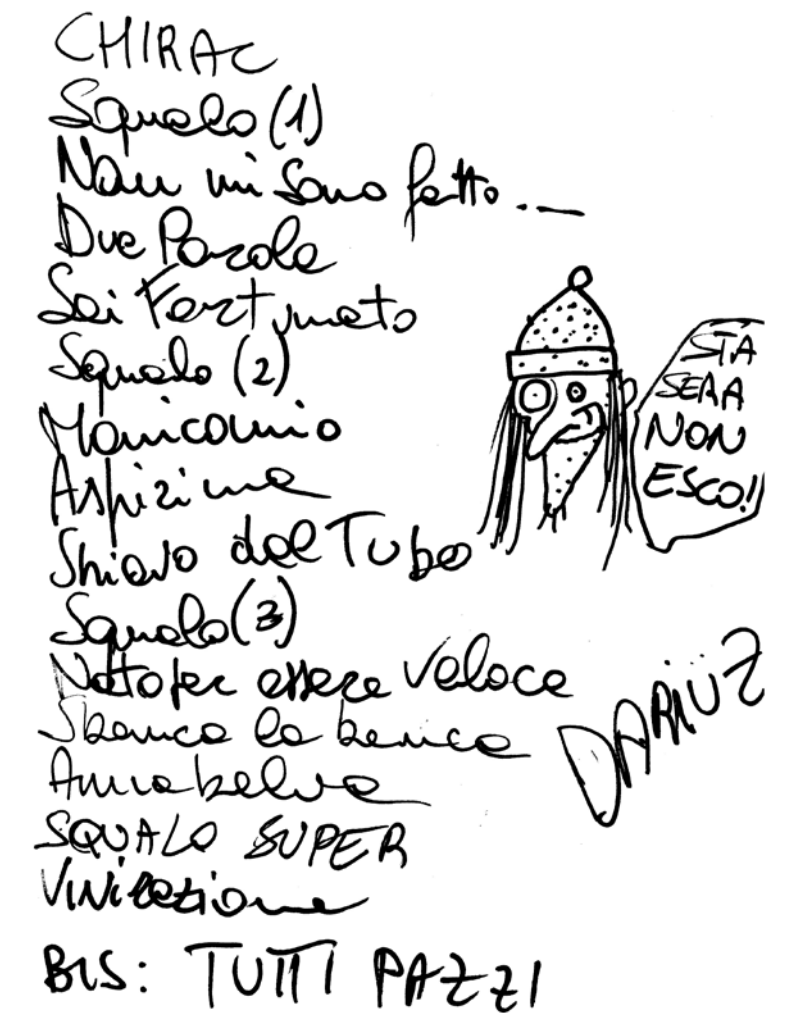 CHIRAC
Squalo (1)
Non mi sono fatto...—
Due Parole
Sei Fortunato
Squalo (2)
Manicomio
Aspirina
Shiavo del Tubo
Squalo (3)
Nato per essere Veloce
Sbanca la banca
Annabelva
SQUALO SUPER
ViNilazione
BIS: TUTTI PAZZI
STA
SERA
NON
ESCO!
DARIUZ